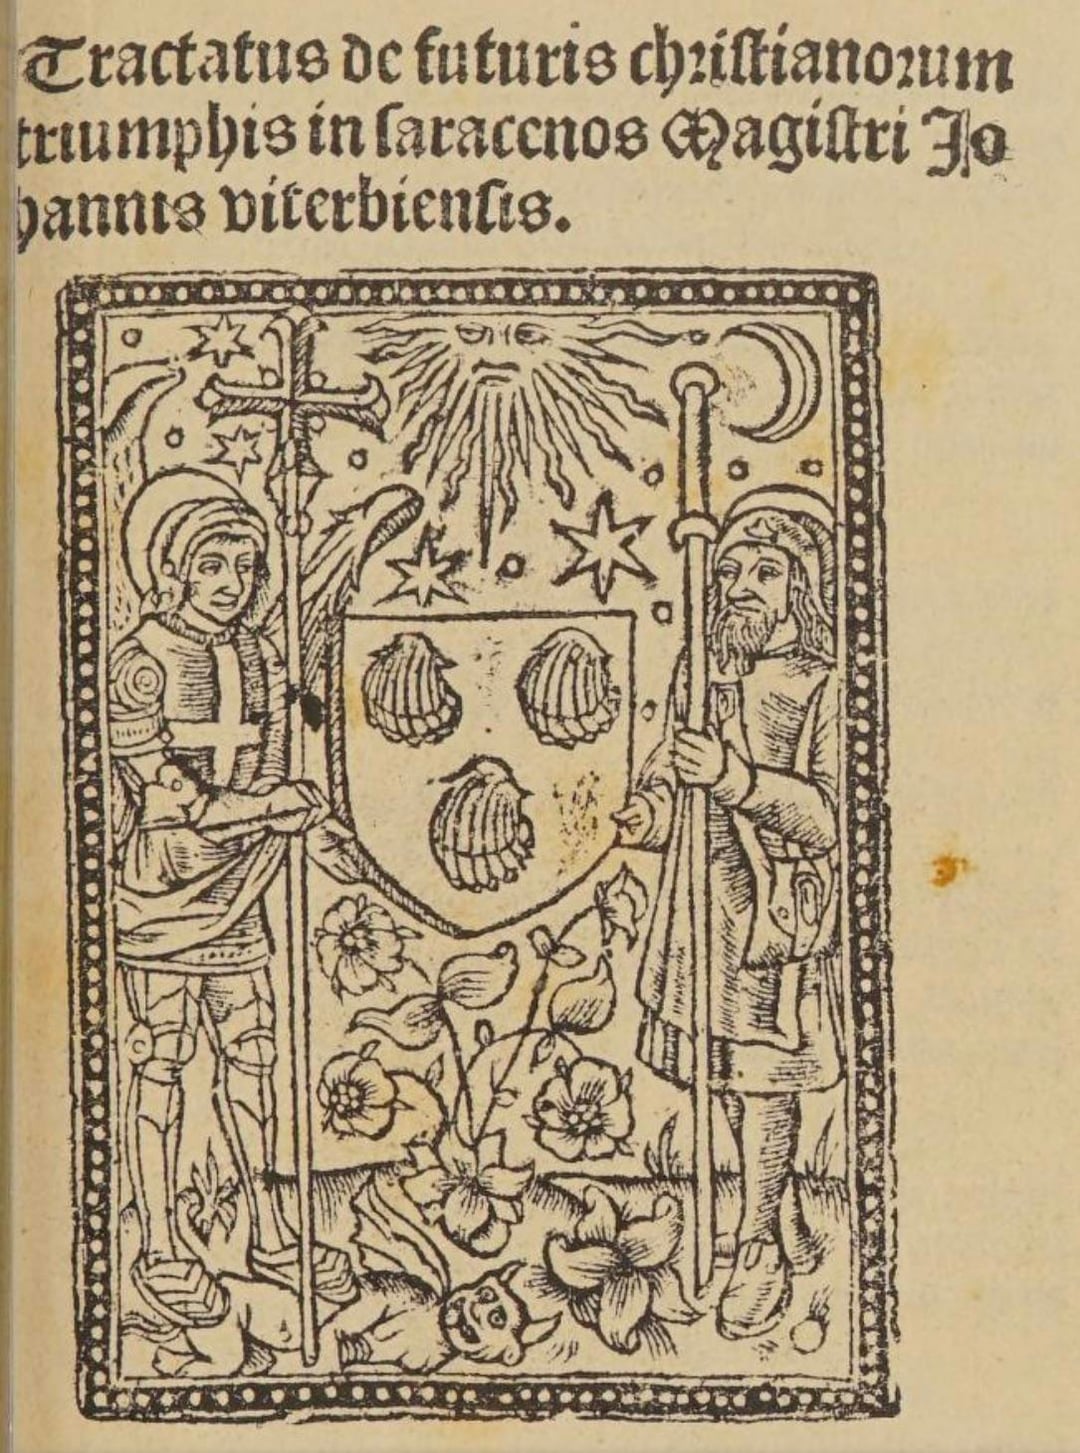 Tractatus de futuris christianorum
triumphis in saracenos Magistri Jo
hannis viterbiensis.